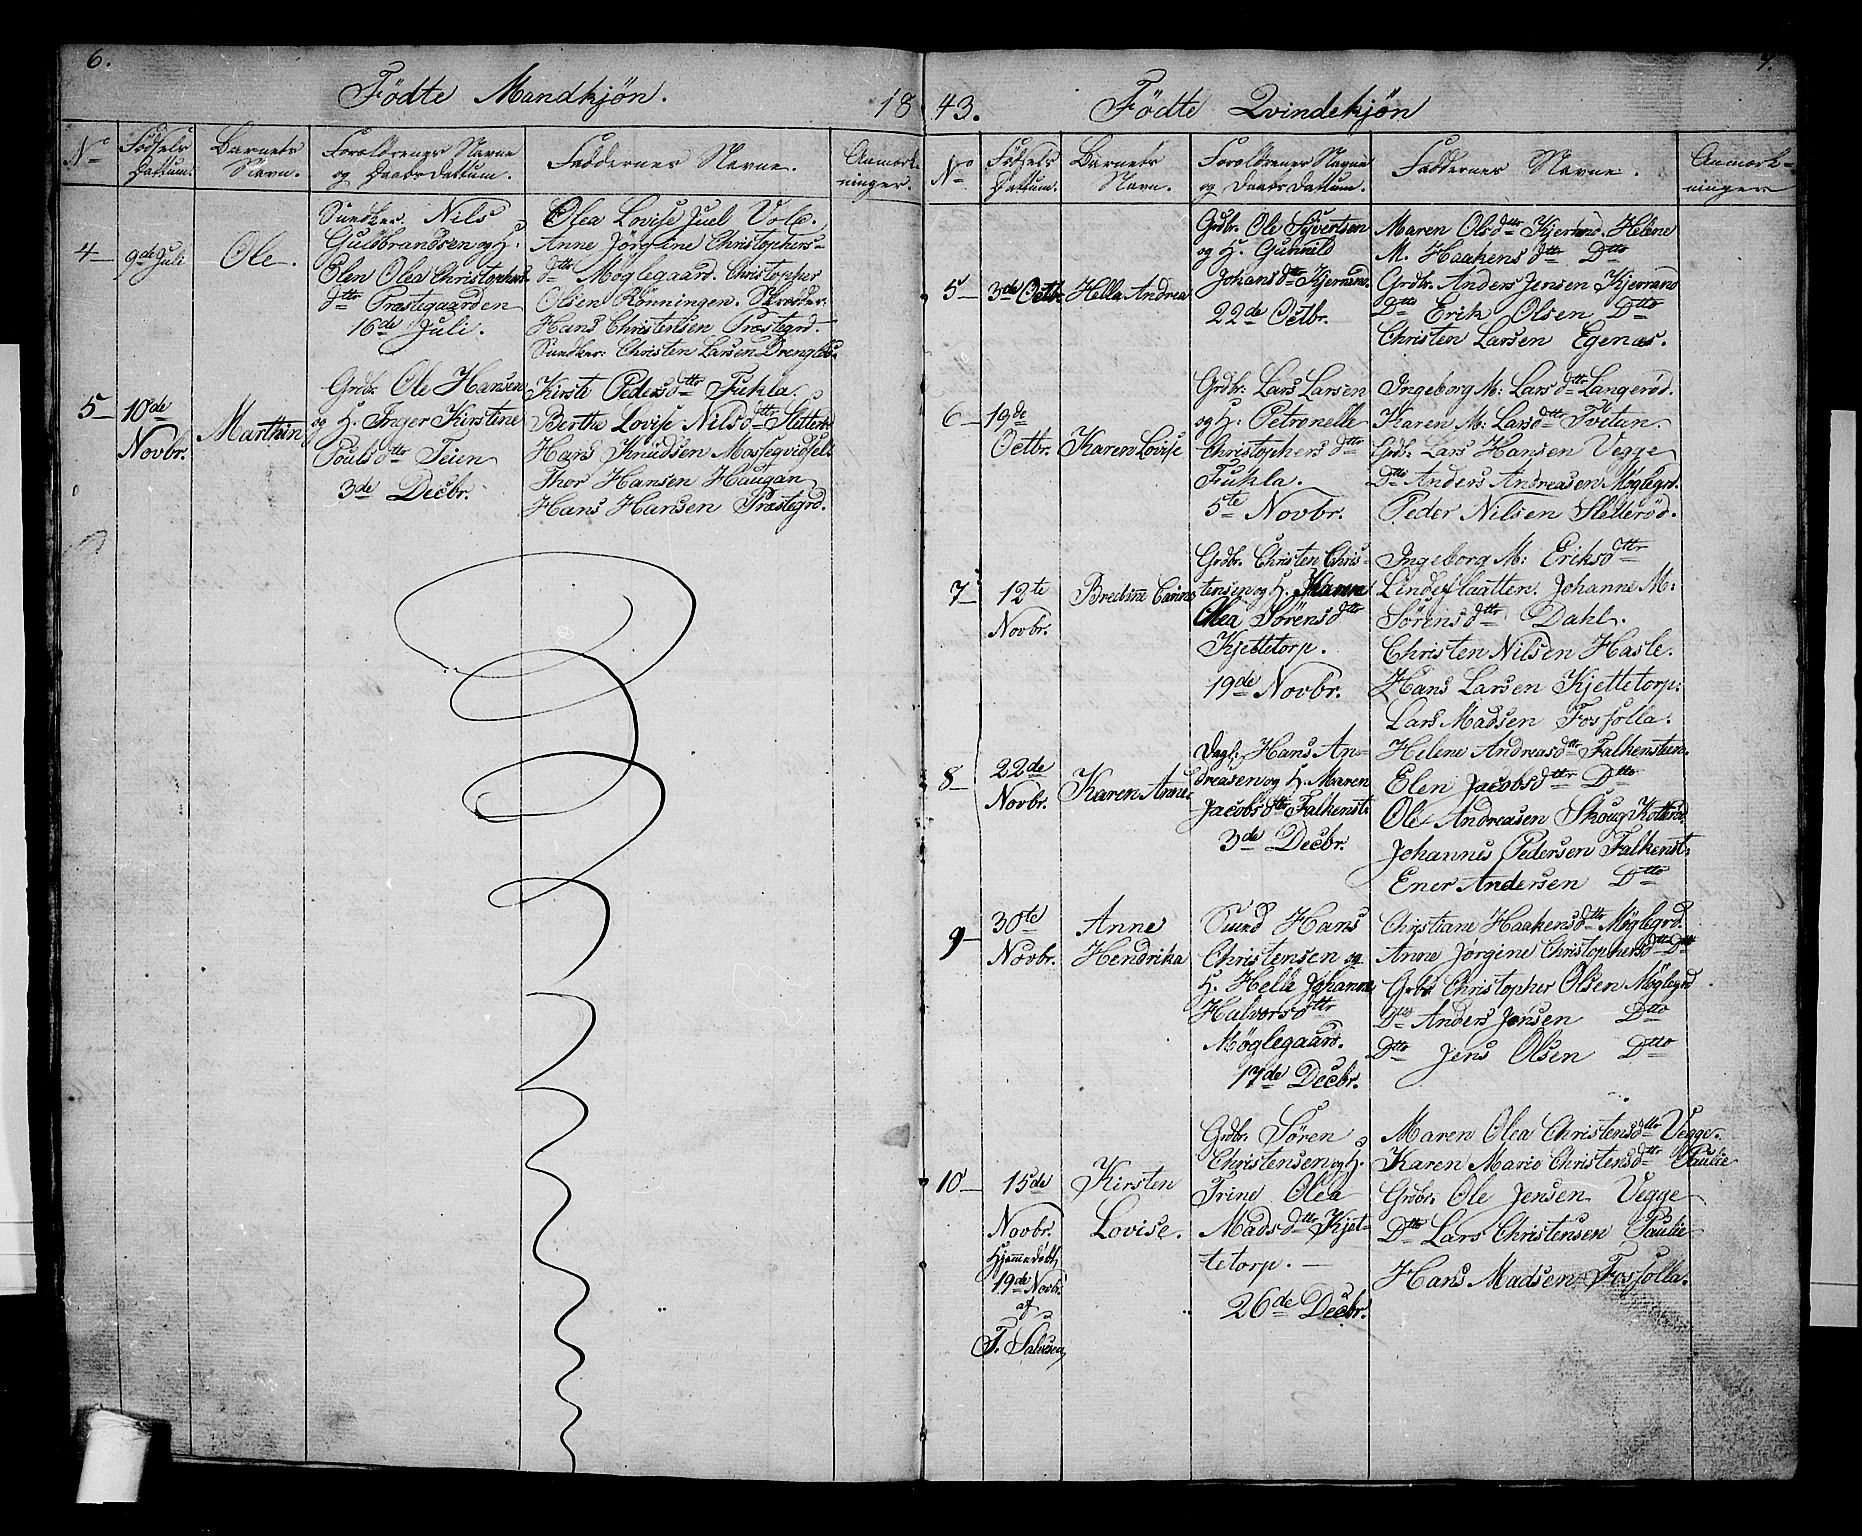 6.
Fødte Mandkjøn. 18
No
Fødsels Dattum.
Barnets Navn.
Forældrenes Navne og Daabsdattum.
Faddernes Navne.
Anmærkninger.
4 – 9de Juli
Ole.
Nils
Guldbrandsen og H.
Elen Olea Christophers
dttr Præstegaarden
16de Juli.
Olea Lovise Juel Vold,
Anne Jörgine Christophers-
dttr Möglegaard. Christopher
Olsen Rönningen. Skræder
Hans Christensen Præstegrd.
Christen Larsen
5 – 10de Novbr.
Marthin
Grdbr. Ole Hansen
og H. Inger Kirstine
Poulsdttr Teien
3de Decbr.
Kirste Pedersdttr Fuhla.
Berthe Lovise Nilsdttr
Hans Knudsen
Thor Hansen Haugan
Hans Hansen Præstegrd.
7.
43. Fødte Qvindekjøn
No
Fødsels Dattum.
Barnets Navn.
Forældrenes Navne og Daabsdattum.
Faddernes Navne.
Anmærkninger
5 – 3de Octbr.
Hella Andrea
Grdbr. Ole Syvertsen
og H. Gunnild
Johansdttr Kjerrano.
22de Octbr.
Maren Olsdttr Kjerrano. Helene
M. Haakensdttr Dtto
Grdbr. Anders Jensen Kjerrano
Dtto Erik Olsen Dtto
Christen Larsen Egenæs.
6 – 19de Octbr.
Karen Lovise
Grdbr: Lars Larsen
og H: Petronelle
Christophersdttr
Fuhla.
5te Novbr.
Ingeborg M: Larsdttr Langeröd
Karen M: Larsdttr Tvetan.
Grdbr. Lars Hansen Vegge
Dtto Anders Andreasen Möglegrd.
Peder Nilsen Sletteröd.
7 – 12te Novbr.
Grdbr. Christen Chris-
tensen og H. Karen
Olea Sörensdttr
Kjettetorp.
19de Novbr.
Ingeborg M: Eriksdttr
Lindeflaatten. Johanne M:
Sörensdttr Dahl.
Christen Nilsen Hasle.
Hans Larsen Kjettetorp:
Lars Madsen Fossolla.
8 – 22de Novbr.
Karen Anne
Dagl: Hans An-
dreasen og H. Maren
Jacobsdttr Falkenst:
3de Decbr.
Helene Andreasdttr Falkensten.
Elen Jacobsdttr Dtto
Ole Andreasen Skoug
Johannes Pedersen Falkenst:
Ener Andersen Dtto
9 – 30te Novbr.
Anne
Hendrika
Hans
Christensen og
H. Helle Johanne
Halvorsdttr
Möglegaard.
17de Decbr.
Christiane Haakensdttr Möglegrd.
Anne Jørgine Christophersdttr Dtto
Grbr Christopher Olsen Möglegrd
Dtto Anders Jensen Dtto
Dtto Jens Olsen Dtto
10 – 15de Novbr.
Hjemmedöbt
19de Novbr.
af
Kirsten
Lovise.
Grdbr. Sören
Christensen og H.
Trine Olea
Madsdttr Kjet-
tetorp. –
26de Decbr.
Maren Olea Christensdttr Vegge.
Karen Marie Christensdttr Paulie
Grdbr. Ole Jensen Vegge
Dtto Lars Christensen Paulie
Hans Madsen Fossolla.